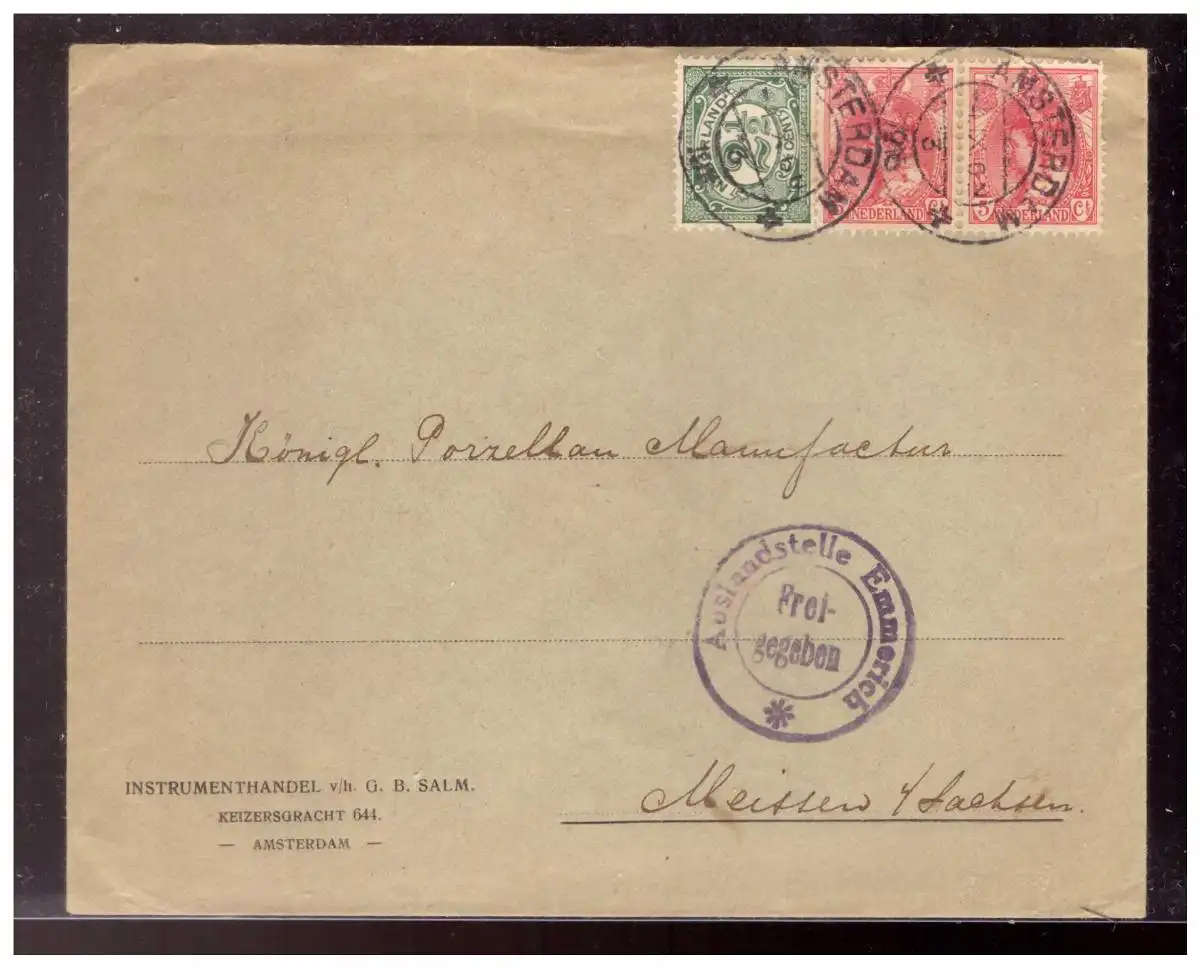 NEDERLAND 2½ CENT
5 NEDERLAND Ct
5 NEDERLAND Ct
AMSTERDAM
AMSTERDAM
Königl. Porzellan Manufactur
Auslandstelle Emmerich
Frei-
gegeben
INSTRUMENTHANDEL v/h. G. B. SALM.
KEIZERSGRACHT 644.
— AMSTERDAM —
Meissen i/Sachsen.